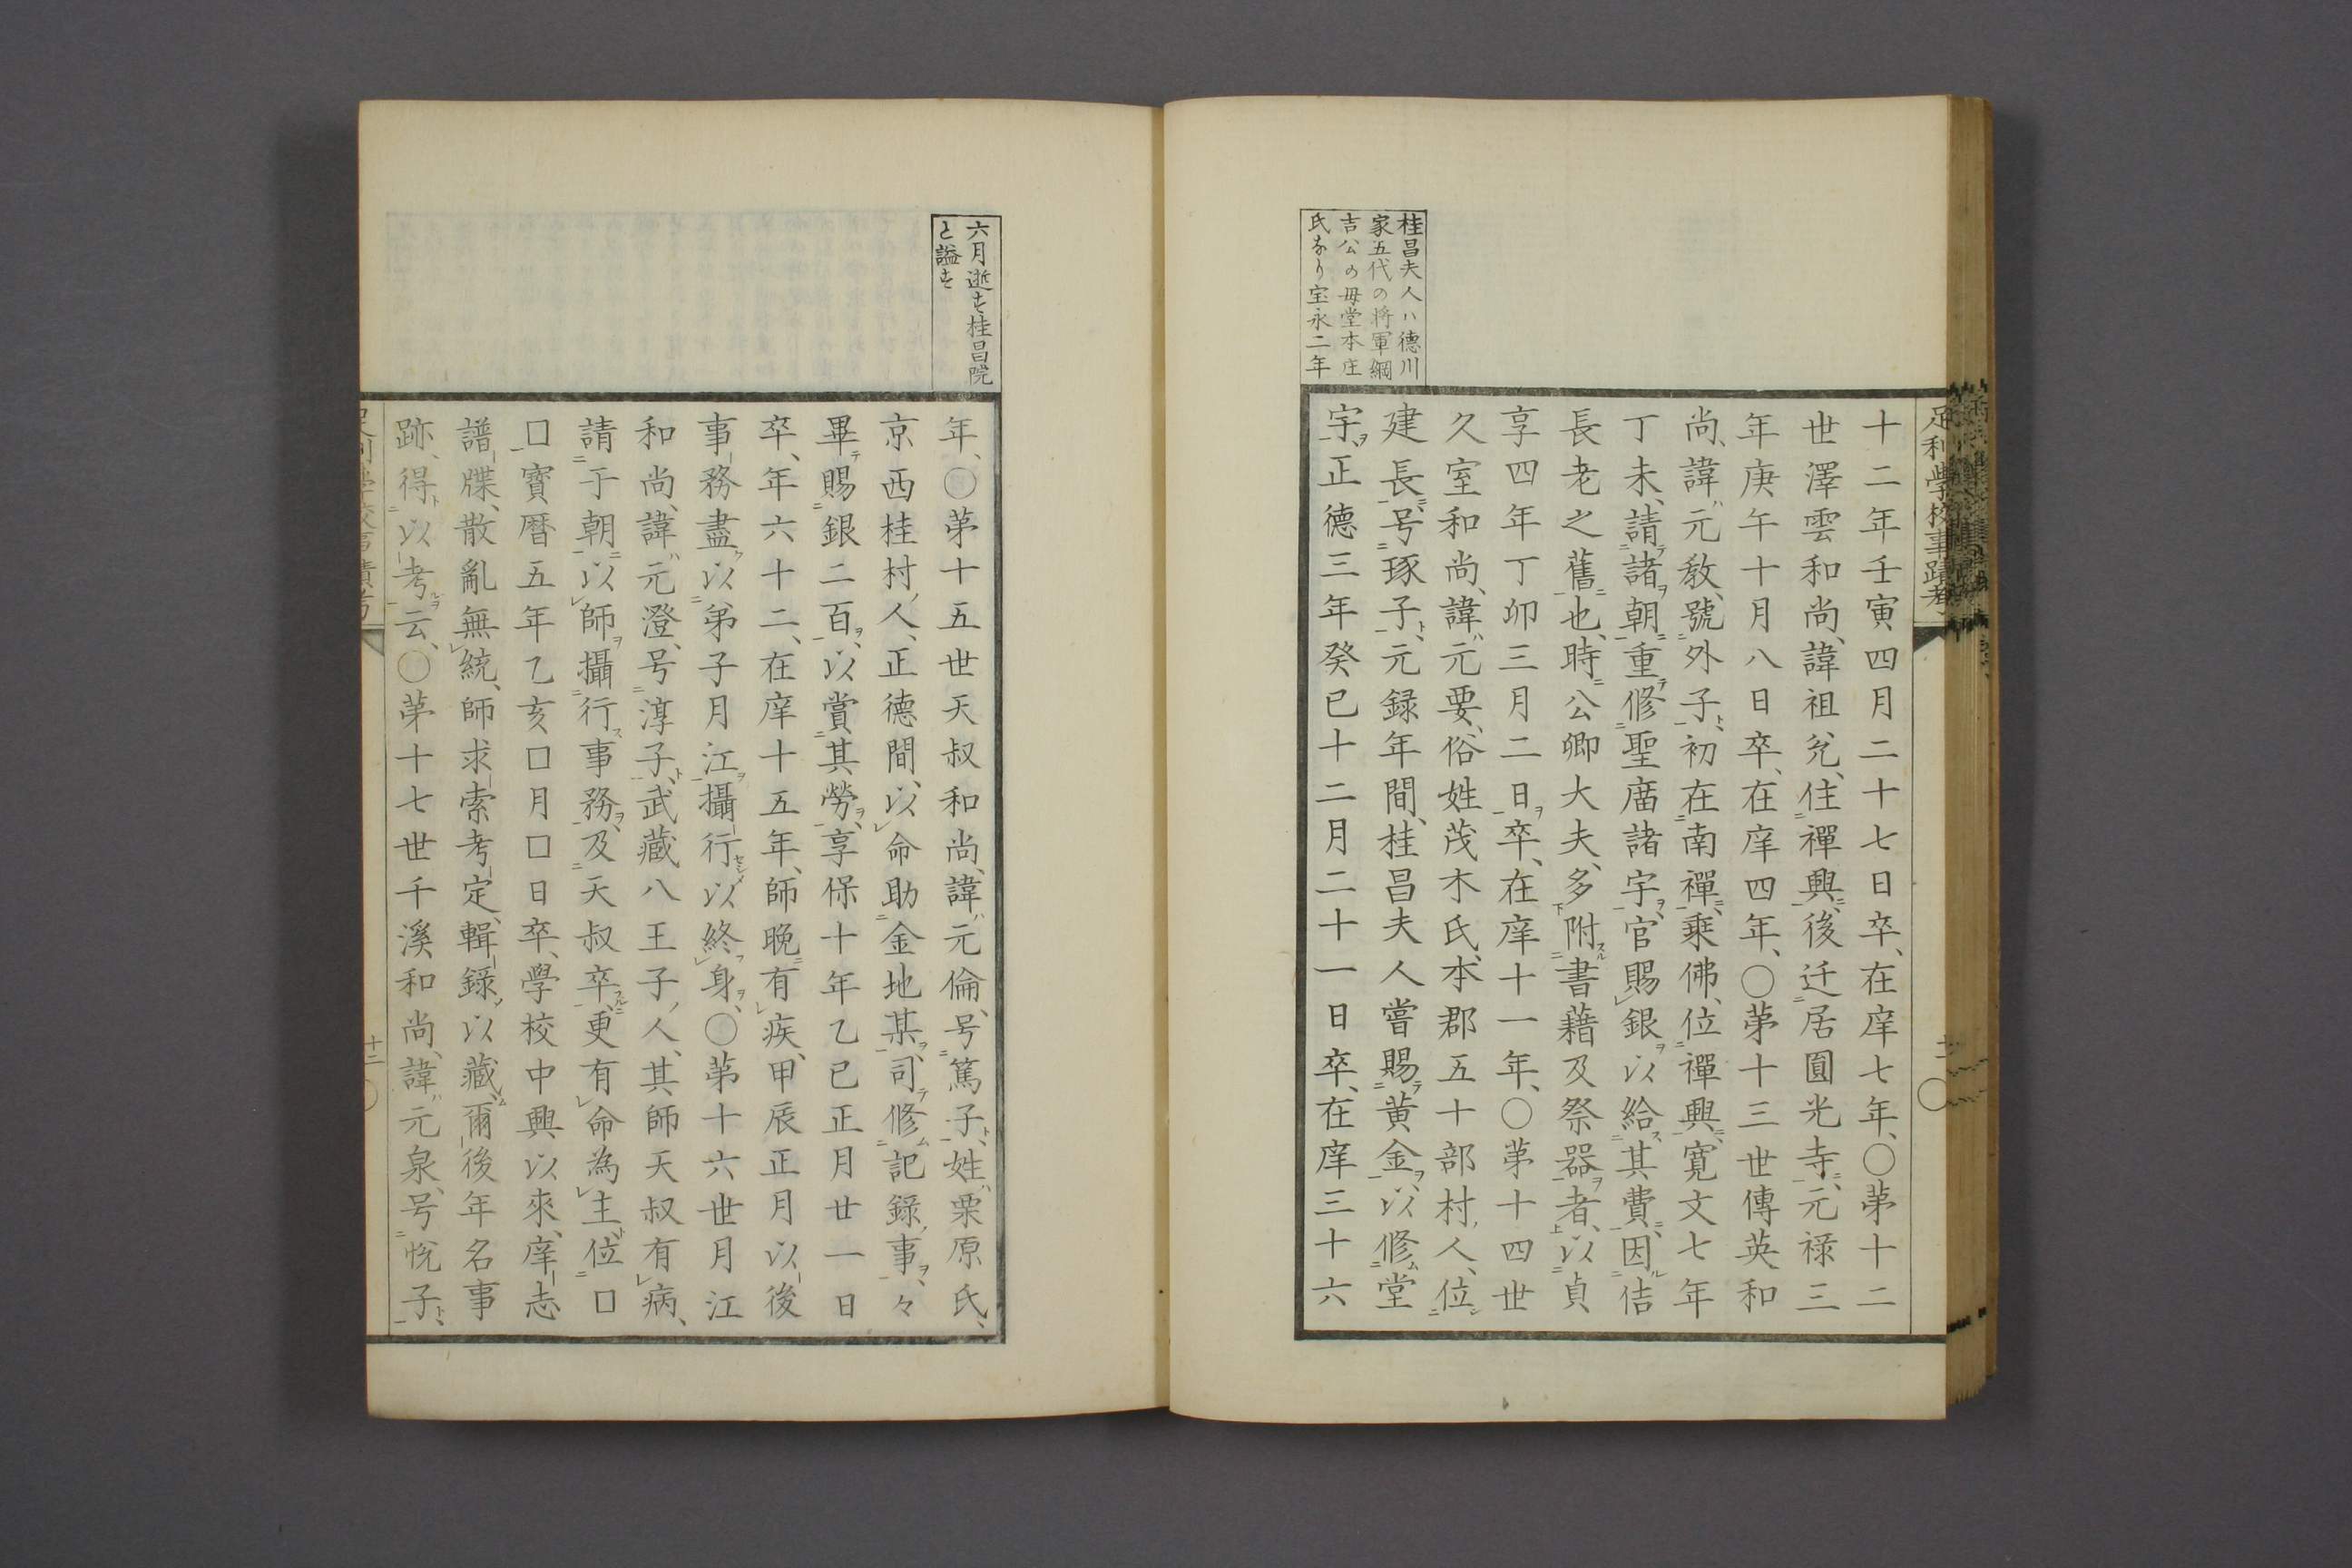 足利學校事蹟考
桂昌夫人ハ德川
家五代の将軍綱
吉公の母堂本庄
氏なり宝永二年
十二年壬寅四月二十七日卒、在庠七年、〇苐十二
世澤雲和尚、諱祖兊、住禪興、後迁居圓光寺、元禄三
年庚午十月八日卒、在庠四年、〇苐十三世傳英和
尚、諱元教、號外子、初在南禪、乗佛、位禪興、寛文七年
丁未、請諸朝重修聖廟諸宇、官賜銀以給其費、因佶
長老之舊也、時公卿大夫、多附書藉及祭器者、以貞、
享四年丁卯三月二日卒、在庠十一年、〇苐十四世
久室和尚、諱元要、俗姓茂木氏、本郡五十部村人、位
建長、号琢子、元録年間、桂昌夫人嘗賜黄金、以修堂
宇、正德三年癸巳十二月二十一日卒、在庠三十六
六月逝す桂昌院
と謚す
年、〇苐十五世天叔和尚、諱元倫、号篤子、姓栗原氏、
京西桂村人、正德間、以命助金地某、司修記錄事、々
畢賜銀二百、以賞其勞、享保十年乙巳正月廿一日
卒、年六十二、在庠十五年、師晩有疾、甲辰正月以後
事務盡以弟子月江攝行以終身、〇苐十六世月江
和尚、諱元澄、号淳子、武藏八王子人、其師天叔有病、
請于朝以師攝行事務、及天叔卒、更有命為主、位口
口寳暦五年乙亥口月口日卒、學校中興以來、庠志
譜牒、散亂無統、師求索考定、輯錄以藏、爾後年名事
跡、得以考云、〇苐十七世千溪和尚、諱元泉、号悅子、
十二